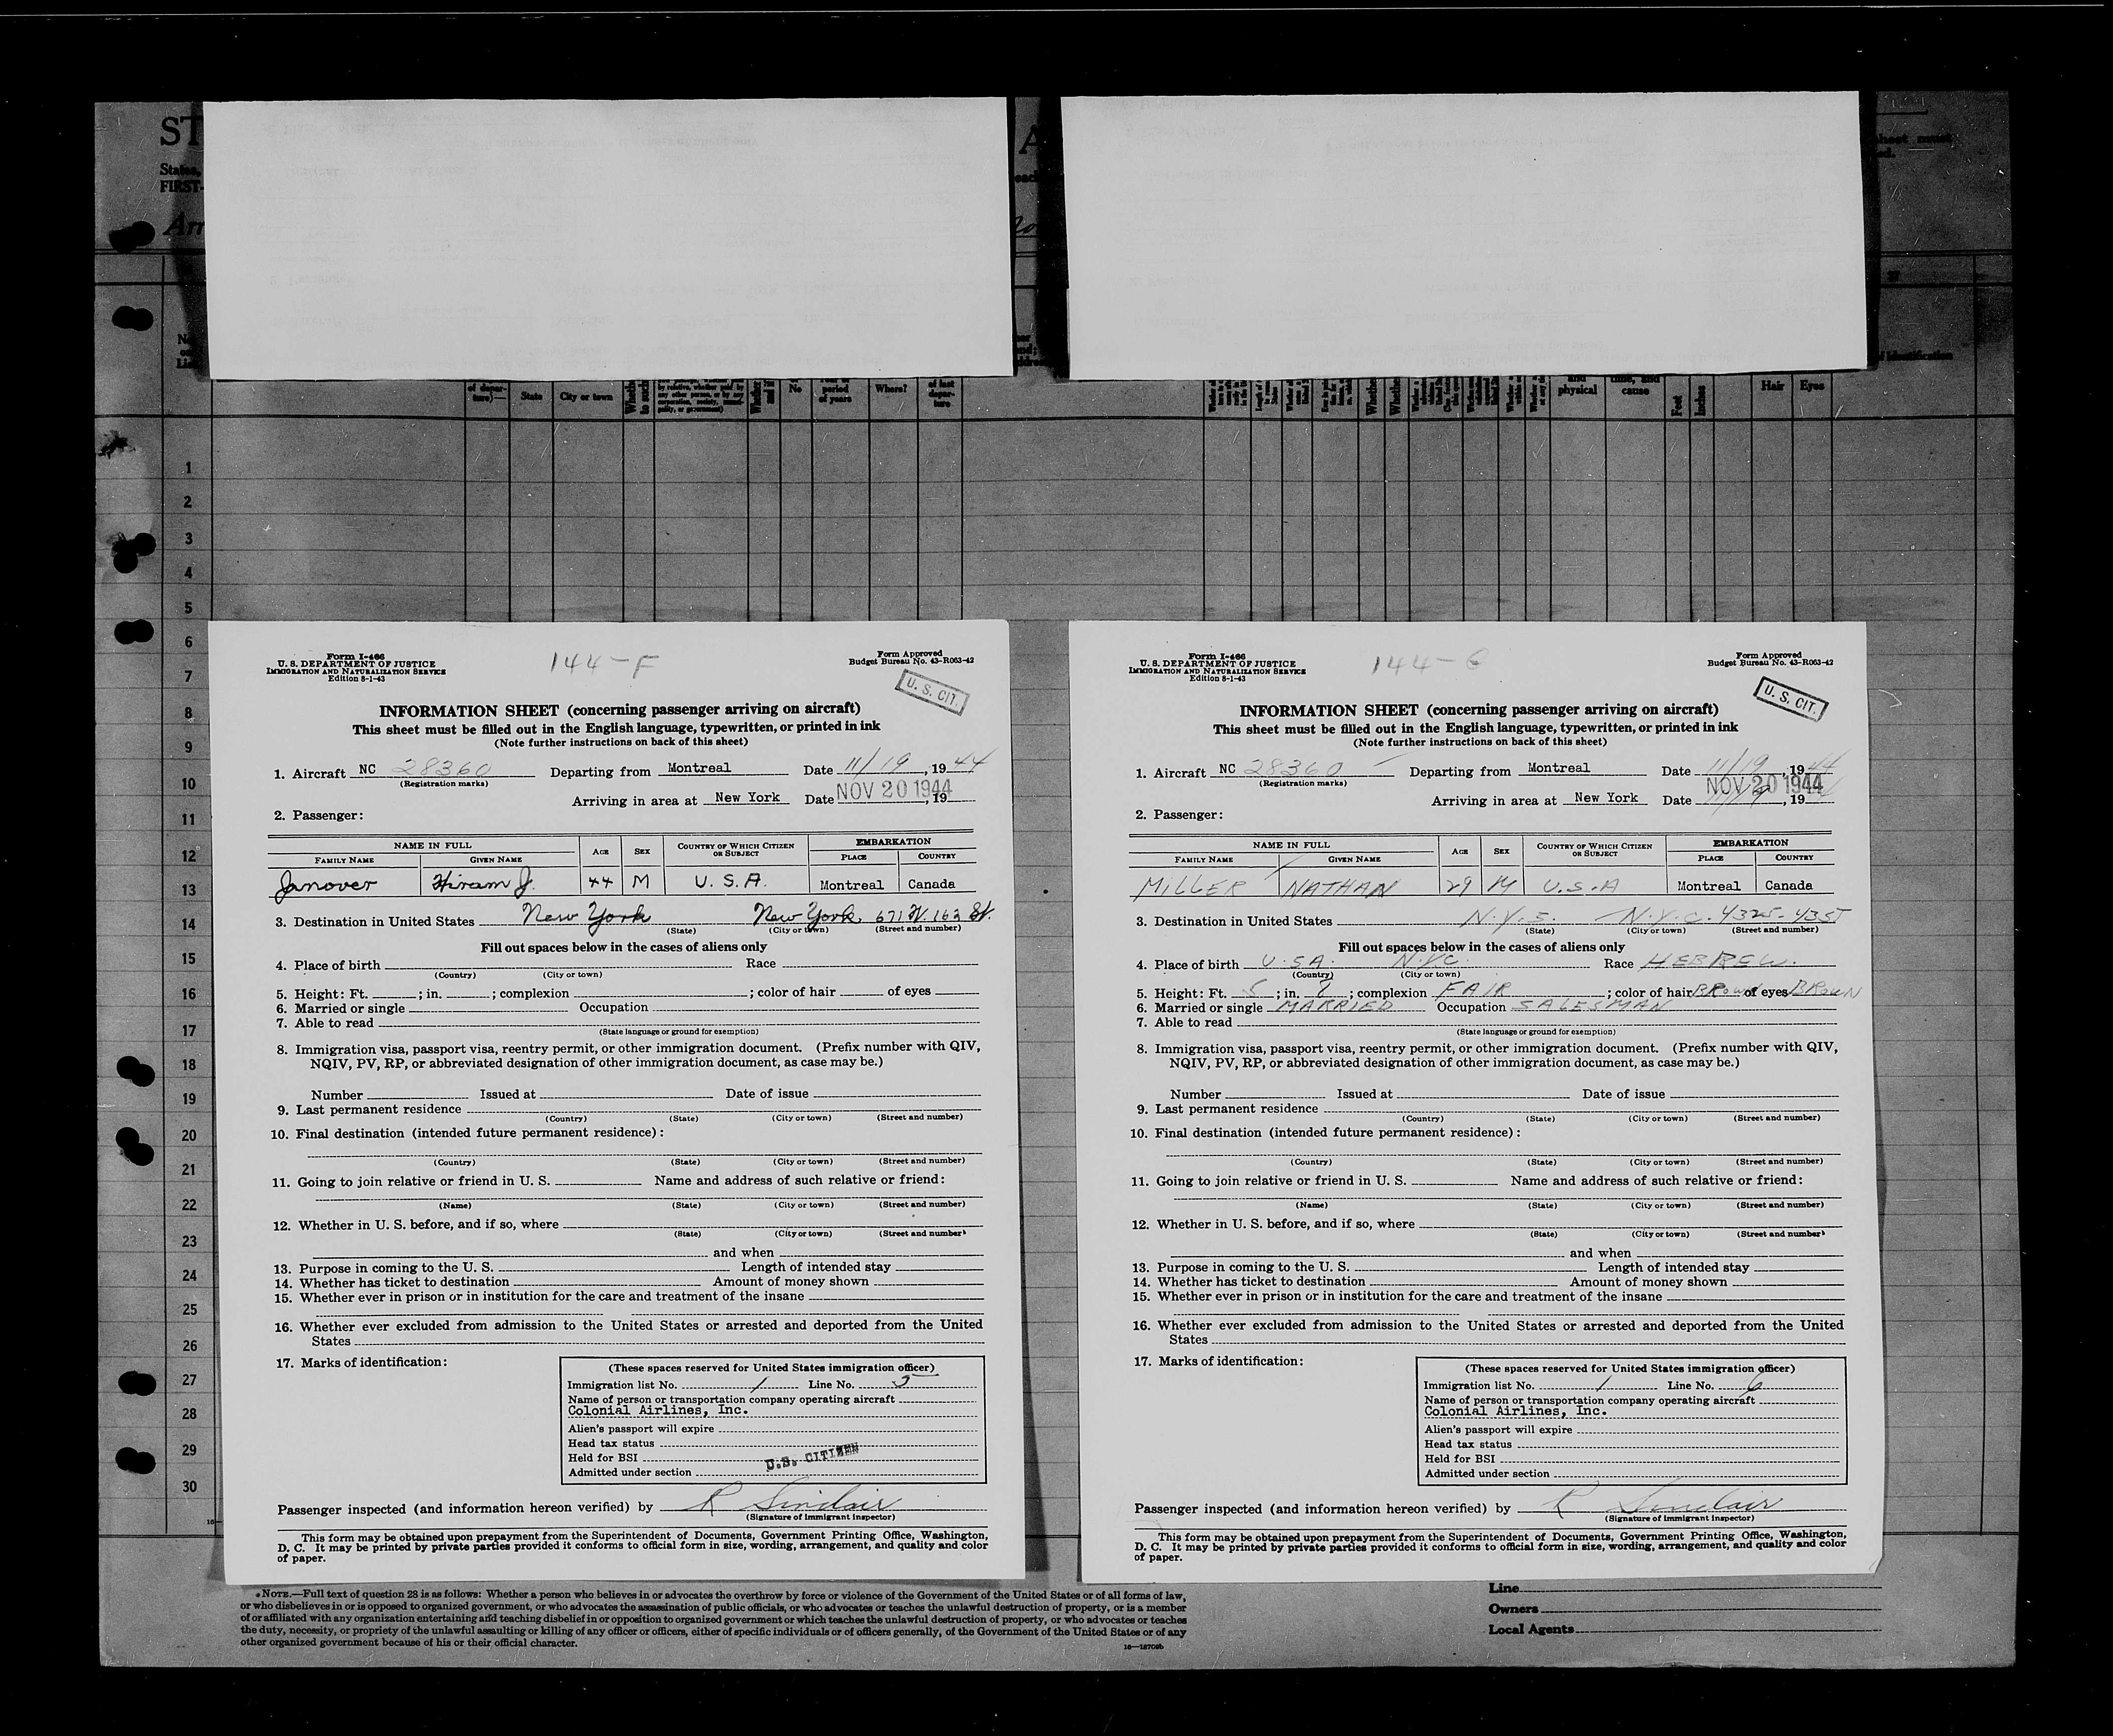 ST
States,
FIRST-
Arr
A
each
No
sheet must
ed.
of Identification
of depar-
ture)—
State
City or town
by relative, whether paid by
any other person, or by any
corporation, society, munici-
pality, or government)
No
period
of years
Where?
of last
depar-
ture
and
physical
time, and
cause
Feet
Inches
Hair
Eyes
1
2
3
4
5
6
7
8
9
10
11
12
13
14
15
16
17
18
19
20
21
22
23
24
25
26
27
28
29
30
Form I-466
U. S. DEPARTMENT OF JUSTICE
IMMIGRATION AND NATURALIZATION SERVICE
Edition 8-1-43
144-F
Form Approved
Budget Bureau No. 43-R063-42
U. S. CIT.
INFORMATION SHEET (concerning passenger arriving on aircraft)
This sheet must be filled out in the English language, typewritten, or printed in ink
(Note further instructions on back of this sheet)
1. Aircraft NC 28360 Departing from Montreal Date 11/19, 1944
(Registration marks)
Arriving in area at New York Date NOV 20 1944, 19
2. Passenger:
NAME IN FULL
FAMILY NAME GIVEN NAME AGE SEX COUNTRY OF WHICH CITIZEN OR SUBJECT EMBARKATION
PLACE COUNTRY
Janover Hiram J. 44 M U.S.A. Montreal Canada
3. Destination in United States New York New York 671 W. 162 St.
(State) (City or town) (Street and number)
Fill out spaces below in the cases of aliens only
4. Place of birth Race
(Country) (City or town)
5. Height: Ft. ; in. ; complexion ; color of hair of eyes
6. Married or single Occupation
7. Able to read
(State language or ground for exemption)
8. Immigration visa, passport visa, reentry permit, or other immigration document. (Prefix number with QIV,
NQIV, PV, RP, or abbreviated designation of other immigration document, as case may be.)
Number Issued at Date of issue
9. Last permanent residence
(Country) (State) (City or town) (Street and number)
10. Final destination (intended future permanent residence):
(Country) (State) (City or town) (Street and number)
11. Going to join relative or friend in U. S. Name and address of such relative or friend:
(Name) (State) (City or town) (Street and number)
12. Whether in U. S. before, and if so, where
(State) (City or town) (Street and number)
and when
13. Purpose in coming to the U. S. Length of intended stay
14. Whether has ticket to destination Amount of money shown
15. Whether ever in prison or in institution for the care and treatment of the insane
16. Whether ever excluded from admission to the United States or arrested and deported from the United
States
17. Marks of identification:
(These spaces reserved for United States immigration officer)
Immigration list No. 1 Line No. 5
Name of person or transportation company operating aircraft
Colonial Airlines, Inc.
Alien's passport will expire
Head tax status
Held for BSI
U.S. CITIZEN
Admitted under section
Passenger inspected (and information hereon verified) by R Sinclair
(Signature of immigrant inspector)
This form may be obtained upon prepayment from the Superintendent of Documents, Government Printing Office, Washington,
D. C. It may be printed by private parties provided it conforms to official form in size, wording, arrangement, and quality and color
of paper.
Form I-466
U. S. DEPARTMENT OF JUSTICE
IMMIGRATION AND NATURALIZATION SERVICE
Edition 8-1-43
144-G
Form Approved
Budget Bureau No. 43-R063-42
U. S. CIT.
INFORMATION SHEET (concerning passenger arriving on aircraft)
This sheet must be filled out in the English language, typewritten, or printed in ink
(Note further instructions on back of this sheet)
1. Aircraft NC 28360 Departing from Montreal Date 11/19, 1944
(Registration marks)
Arriving in area at New York Date NOV 20 1944, 19
2. Passenger:
NAME IN FULL
FAMILY NAME GIVEN NAME AGE SEX COUNTRY OF WHICH CITIZEN OR SUBJECT EMBARKATION
PLACE COUNTRY
MILLER NATHAN 29 M U.S.A Montreal Canada
3. Destination in United States N.Y.S. N.Y.C. 4325-4355
(State) (City or town) (Street and number)
Fill out spaces below in the cases of aliens only
4. Place of birth U.S.A. N.Y.C. Race HEBREW.
(Country) (City or town)
5. Height: Ft. 5; in. 7; complexion FAIR; color of hair BROWN of eyes BROWN
6. Married or single MARRIED Occupation SALESMAN
7. Able to read
(State language or ground for exemption)
8. Immigration visa, passport visa, reentry permit, or other immigration document. (Prefix number with QIV,
NQIV, PV, RP, or abbreviated designation of other immigration document, as case may be.)
Number Issued at Date of issue
9. Last permanent residence
(Country) (State) (City or town) (Street and number)
10. Final destination (intended future permanent residence):
(Country) (State) (City or town) (Street and number)
11. Going to join relative or friend in U. S. Name and address of such relative or friend:
(Name) (State) (City or town) (Street and number)
12. Whether in U. S. before, and if so, where
(State) (City or town) (Street and number)
and when
13. Purpose in coming to the U. S. Length of intended stay
14. Whether has ticket to destination Amount of money shown
15. Whether ever in prison or in institution for the care and treatment of the insane
16. Whether ever excluded from admission to the United States or arrested and deported from the United
States
17. Marks of identification:
(These spaces reserved for United States immigration officer)
Immigration list No. 1 Line No. 6
Name of person or transportation company operating aircraft
Colonial Airlines, Inc.
Alien's passport will expire
Head tax status
Held for BSI
Admitted under section
Passenger inspected (and information hereon verified) by R Sinclair
(Signature of immigrant inspector)
This form may be obtained upon prepayment from the Superintendent of Documents, Government Printing Office, Washington,
D. C. It may be printed by private parties provided it conforms to official form in size, wording, arrangement, and quality and color
of paper.
NOTE.—Full text of question 28 is as follows: Whether a person who believes in or advocates the overthrow by force or violence of the Government of the United States or of all forms of law,
or who disbelieves in or is opposed to organized government, or who advocates the assassination of public officials, or who advocates or teaches the unlawful destruction of property, or is a member
of or affiliated with any organization entertaining and teaching disbelief in or opposition to organized government or which teaches the unlawful destruction of property, or who advocates or teaches
the duty, necessity, or propriety of the unlawful assaulting or killing of any officer or officers, either of specific individuals or of officers generally, of the Government of the United States or of any
other organized government because of his or their official character.
16—18709b
Line
Owners
Local Agents